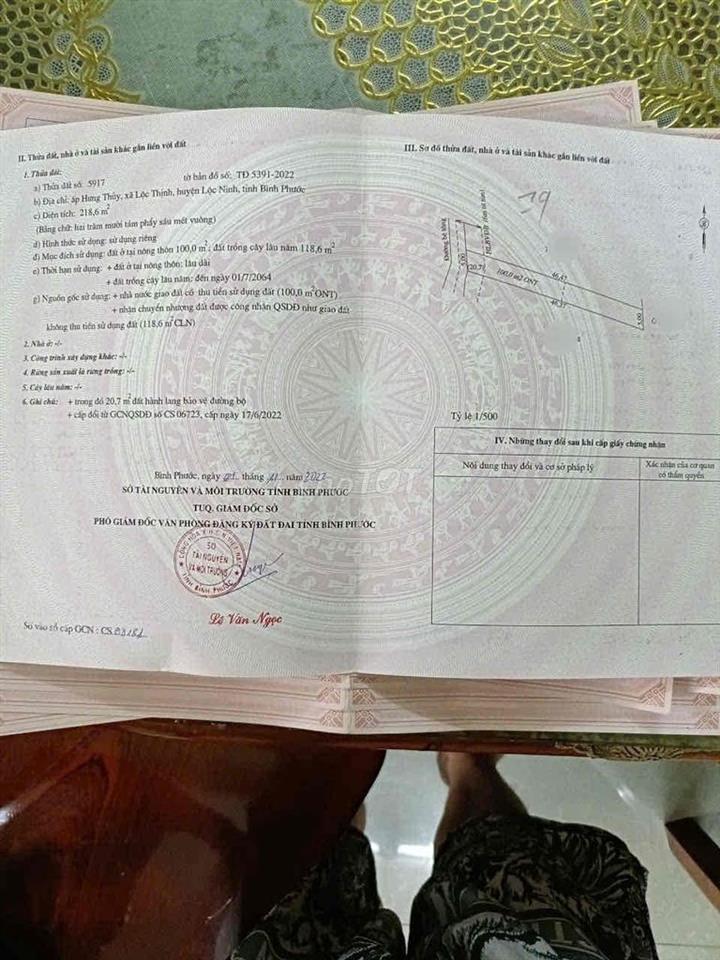 II. Thửa đất, nhà ở và tài sản khác gắn liền với đất
1. Thửa đất:
a) Thửa đất số: 5917 tờ bản đồ số: TĐ 5391-2022
b) Địa chỉ: ấp Hưng Thủy, xã Lộc Thịnh, huyện Lộc Ninh, tỉnh Bình Phước
c) Diện tích: 218,6 m²
(Bằng chữ: hai trăm mười tám phẩy sáu mét vuông)
d) Hình thức sử dụng: sử dụng riêng
đ) Mục đích sử dụng: đất ở tại nông thôn 100,0 m²; đất trồng cây lâu năm 118,6 m²
e) Thời hạn sử dụng: + đất ở tại nông thôn: lâu dài
+ đất trồng cây lâu năm: đến ngày 01/7/2064
g) Nguồn gốc sử dụng: + nhà nước giao đất có thu tiền sử dụng đất (100,0 m² ONT)
+ nhận chuyển nhượng đất được công nhận QSDĐ như giao đất
không thu tiền sử dụng đất (118,6 m² CLN)
2. Nhà ở: -/-
3. Công trình xây dựng khác: -/-
4. Rừng sản xuất là rừng trồng: -/-
5. Cây lâu năm: -/-
6. Ghi chú: + trong đó 20,7 m² đất hành lang bảo vệ đường bộ
+ cấp đổi từ GCNQSDĐ số CS 06723, cấp ngày 17/6/2022
Bình Phước, ngày tháng 11 năm 2022
SỞ TÀI NGUYÊN VÀ MÔI TRƯỜNG TỈNH BÌNH PHƯỚC
TUQ. GIÁM ĐỐC SỞ
PHÓ GIÁM ĐỐC VĂN PHÒNG ĐĂNG KÝ ĐẤT ĐAI TỈNH BÌNH PHƯỚC
SỞ
TÀI NGUYÊN
VÀ MÔI TRƯỜNG
TỈNH BÌNH PHƯỚC
Lê Văn Ngọc
Số vào sổ cấp GCN : CS.
III. Sơ đồ thửa đất, nhà ở và tài sản khác gắn liền với đất
19
Đường bê tông
HLBVĐB
5.00
(20.7)
100,0 m2 ONT
46.47
5.00
Tỷ lệ 1/500
IV. Những thay đổi sau khi cấp giấy chứng nhận
Nội dung thay đổi và cơ sở pháp lý
Xác nhận của cơ quan
có thẩm quyền